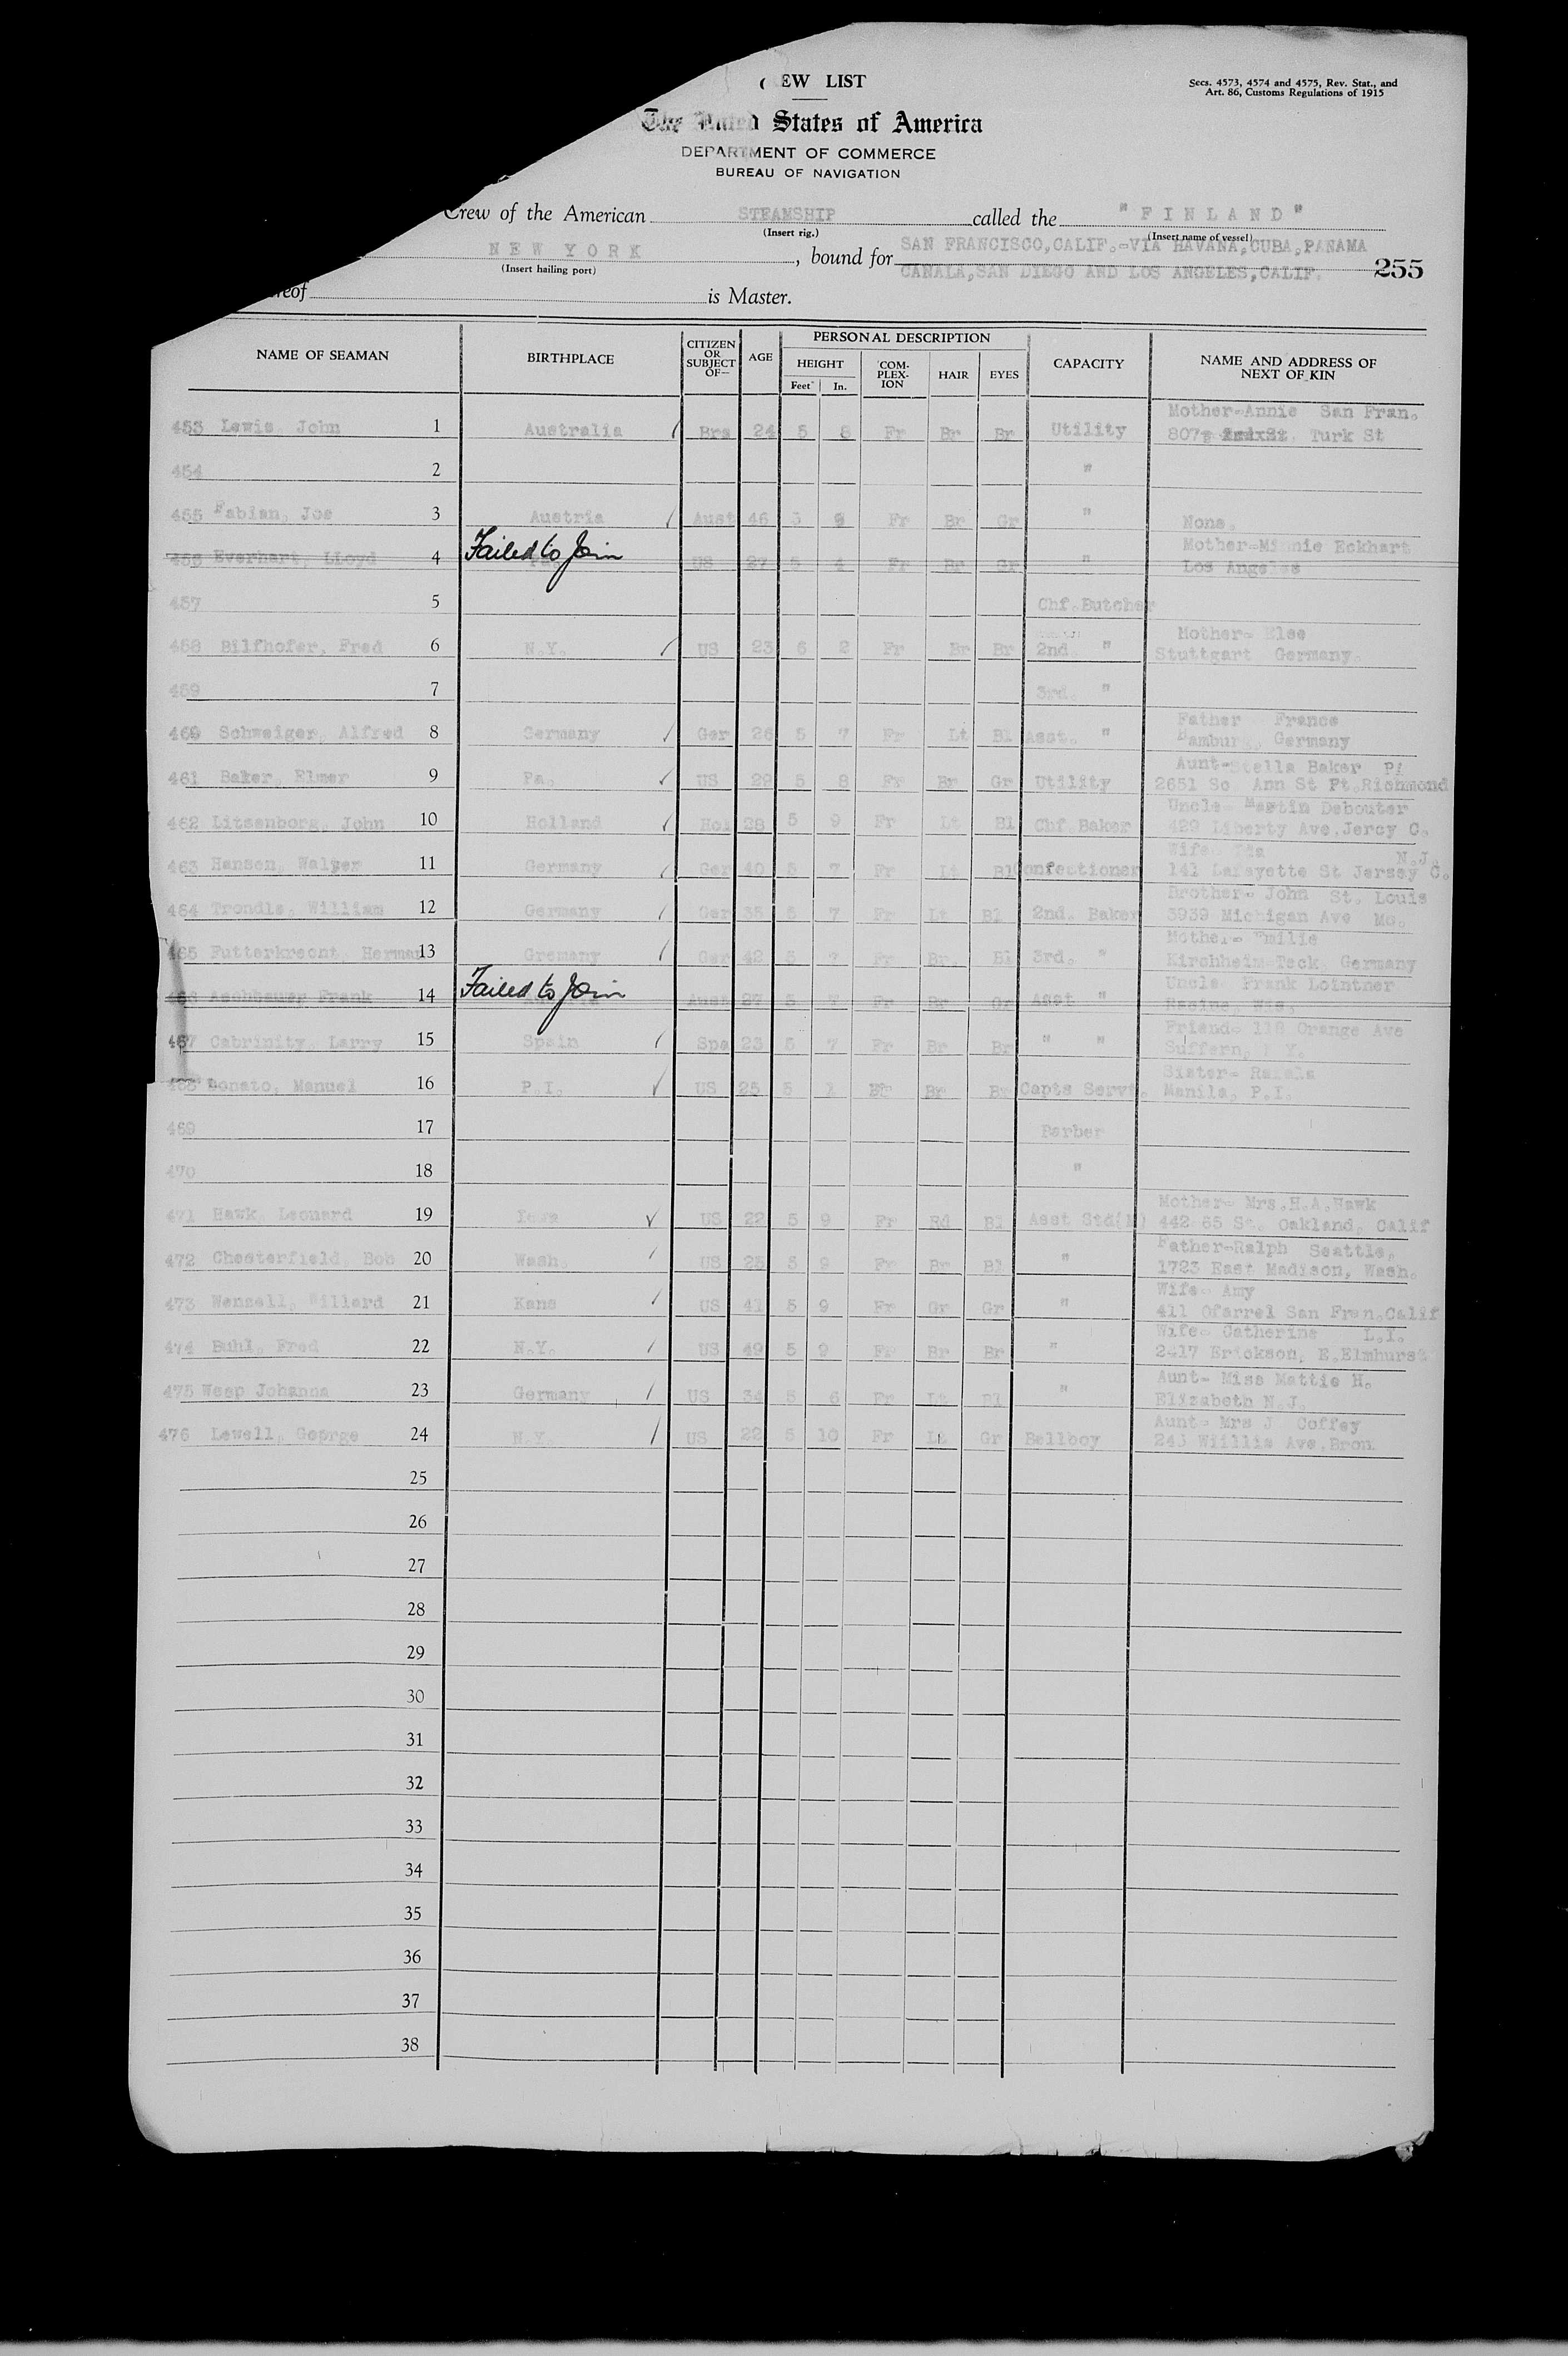 EW LIST
Secs. 4573, 4574 and 4575, Rev. Stat., and
Art. 86, Customs Regulations of 1915
The United States of America
DEPARTMENT OF COMMERCE
BUREAU OF NAVIGATION
Crew of the American STEAMSHIP called the "FINLAND"
(Insert rig.) (Insert name of vessel)
NEW YORK, bound for SAN FRANCISCO,CALIF.-VIA HAVANA,CUBA,PANAMA
(Insert hailing port) CANALA,SAN DIEGO AND LOS ANGELES,CALIF. 255
reof is Master.
NAME OF SEAMAN BIRTHPLACE CITIZEN OR SUBJECT OF— AGE PERSONAL DESCRIPTION CAPACITY NAME AND ADDRESS OF NEXT OF KIN
HEIGHT COM-PLEX-ION HAIR EYES
Feet In.
Mother-Annie San Fran.
453 Lewis John 1 Australia Bra 24 5 8 Fr Br Br Utility 807 Turk St
454 2 "
455 Fabian, Jos 3 Austria Aust 46 5 9 Fr Br Gr " None.
Mother-Minnie Eckhart
456 Everhart, LLoyd 4 Failed to Join US 27 5 4 Fr Br Gr " Los Angeles
457 5 Chf.Butcher
Mother- Else
458 Bilfhofer, Fred 6 N.Y. US 23 6 2 Fr Br Br 2nd. " Stuttgart Germany.
459 7 3rd. "
Father France
460 Schweiger, Alfred 8 Germany Ger 26 5 7 Fr Lt Bl Asst. " Hamburg, Germany
Aunt-Stella Baker
461 Baker, Elmer 9 Pa. US 29 5 8 Fr Br Gr Utility 2651 So. Ann St Pt.Richmond
Uncle- Martin Debouter
462 Litsenborg, John 10 Holland Hol 28 5 9 Fr Lt Bl Chf.Baker 429 Liberty Ave,Jercy C.
Wife- Ida N.J.
463 Hansen, Walyer 11 Germany Ger 40 5 7 Fr Lt Bl Confectioner 141 Lafayette St Jersey C.
Brother- John St. Louis
464 Trondle, William 12 Germany Ger 35 5 7 Fr Lt Bl 2nd. Baker 3939 Michigan Ave Mo.
Mother- Emilie
465 Futterkrecht, Herman 13 Gremany Ger 42 5 7 Fr Br. Bl 3rd. " Kirchheim-Teck, Germany
Uncle- Frank Lointner
Frank 14 Failed to Join Aust 27 5 7 Fr Br Gr Asst " Racine, Wis,
Friend- 118 Orange Ave
467 Cabrinity, Larry 15 Spain Spa 23 5 7 Fr Br Br " " Suffern, N.Y.
Sister-
468 Donato, Manuel 16 P.I. US 25 5 1 Br Br Capts Servt. Manila, P.I.
469 17 Barber
470 18 "
Mother- Mrs.H.A.Hawk
471 Hawk, Leonard 19 Iowa US 22 5 9 Fr Rd Bl Asst Std 442 65 St. Oakland, Calif
Father-Ralph Seattle,
472 Chesterfield, Bob 20 Wash. US 25 5 9 Fr Br Bl " 1723 East Madison, Wash.
Wife- Amy
473 Wensell, Willard 21 Kans US 41 5 9 Fr Gr Gr " 411 Ofarrel San Fran,Calif
Wife- Catherine L.I.
474 Buhl, Fred 22 N.Y. US 49 5 9 Fr Br Br " 2417 Erickson, E.Elmhurst
Aunt- Miss Mattie H.
475 Weep Johanna 23 Germany US 34 5 6 Fr Lt Bl " Elizabeth N.J.
Aunt- Mrs J Coffey
476 Lewell, George 24 N.Y. US 22 5 10 Fr Lt Gr Bellboy 243 Wiillis Ave,Bron.
25
26
27
28
29
30
31
32
33
34
35
36
37
38